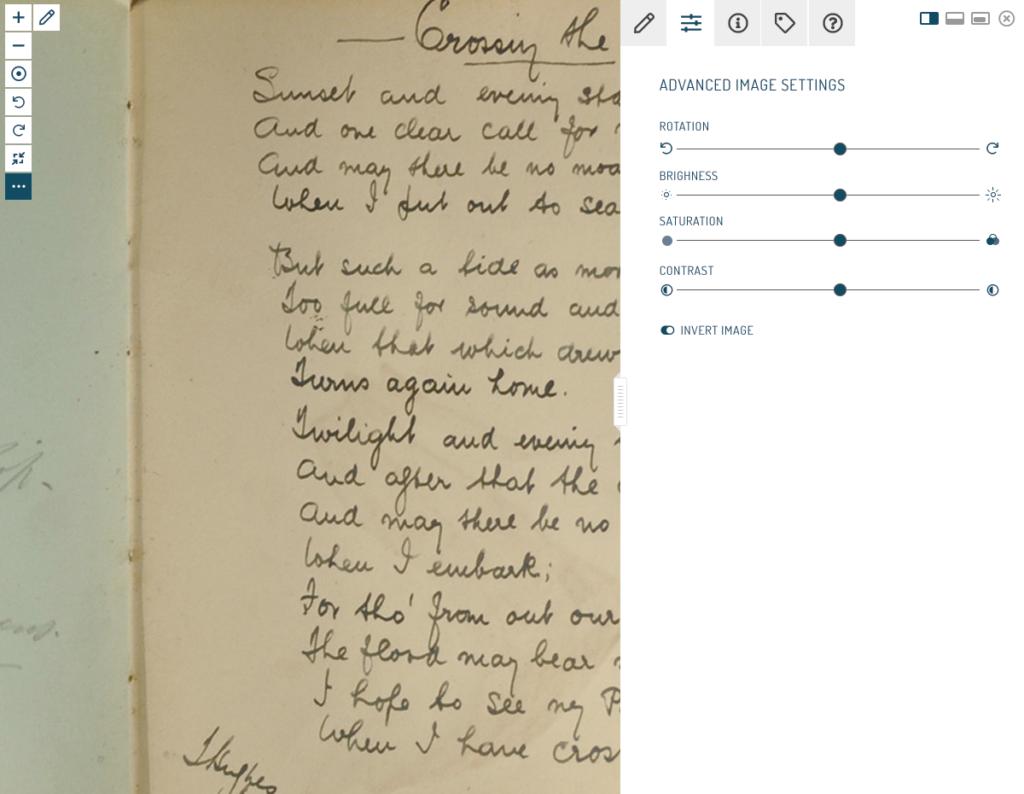 Crossing the
Sunset and evening sta
And one clear call for
And may there be no moa
When I put out to sea
But such a tide as mo
Too full for sound and
When that which drew
Turns again home.
Twilight and evening
And after that the
And may there be no
When I embark;
For tho' from out our
The flood may bear
I hope to see my P
When I have cros
J Hughes
ADVANCED IMAGE SETTINGS
ROTATION
BRIGHNESS
SATURATION
CONTRAST
INVERT IMAGE